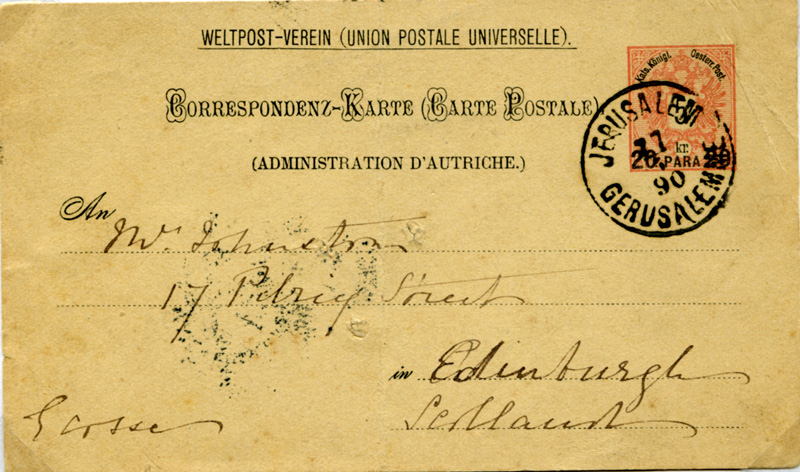 WELTPOST-VEREIN (UNION POSTALE UNIVERSELLE).
Kais. Königl. Oesterr. Post.
CORRESPONDENZ-KARTE (CARTE POSTALE)
JERUSALEM
kr.
20 PARA 20
90
GERUSALEMME
(ADMINISTRATION D'AUTRICHE.)
An
Mrs. Johnston
17 Pilrig Street
in Edinburgh
Scotland
Ecosse